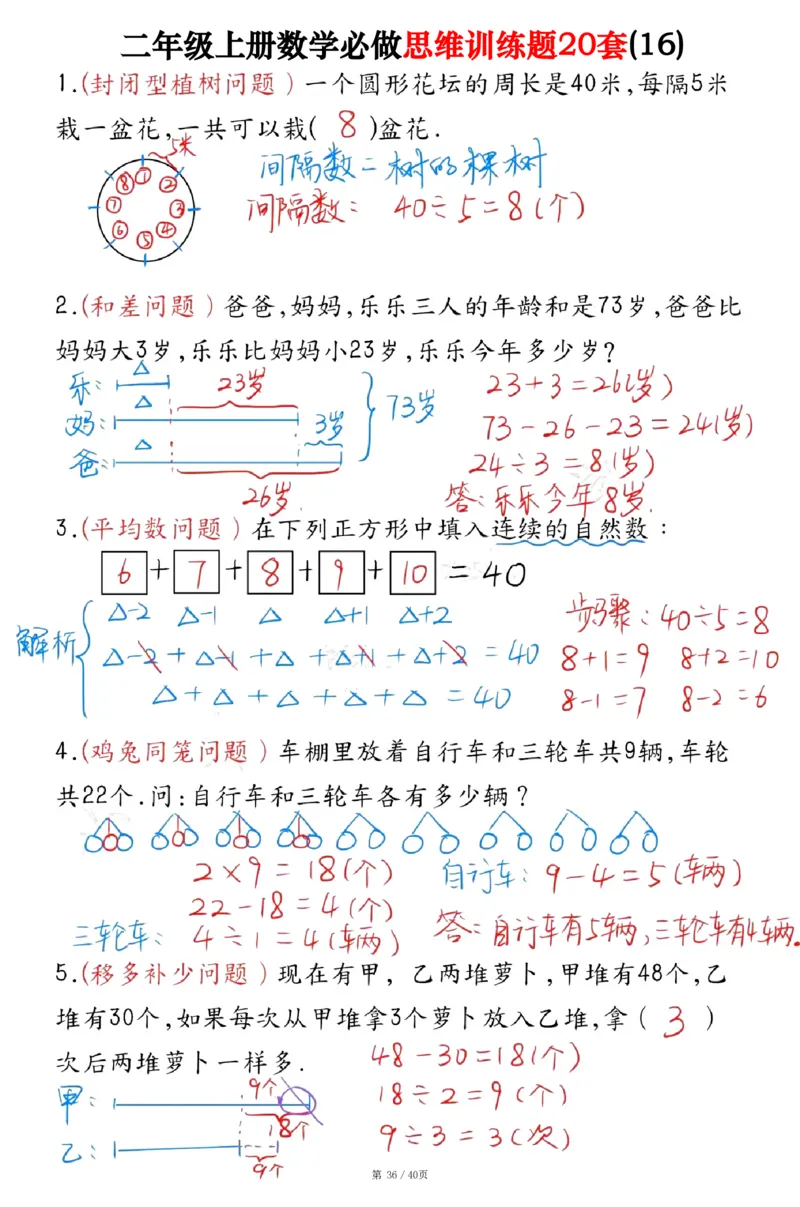 二年级上册数学必做思维训练题20套(16)
1.(封闭型植树问题)一个圆形花坛的周长是40米,每隔5米
栽一盆花,一共可以栽( 8 )盆花.
5米
① ② ③ ④ ⑤ ⑥ ⑦ ⑧
间隔数=树的棵树
间隔数: 40÷5=8(个)
2.(和差问题)爸爸,妈妈,乐乐三人的年龄和是73岁,爸爸比
妈妈大3岁,乐乐比妈妈小23岁,乐乐今年多少岁?
乐: △ 23岁
妈: △ 3岁 73岁
爸: △
26岁
23+3=26(岁)
73-26-23=24(岁)
24÷3=8(岁)
答:乐乐今年8岁.
3.(平均数问题)在下列正方形中填入连续的自然数:
6+7+8+9+10=40
解析
△-2 △-1 △ △+1 △+2
△-2+△-1+△+△+1+△+2=40
△+△+△+△+△=40
步骤:40÷5=8
8+1=9 8+2=10
8-1=7 8-2=6
4.(鸡兔同笼问题)车棚里放着自行车和三轮车共9辆,车轮
共22个.问:自行车和三轮车各有多少辆?
2×9=18(个)
22-18=4(个)
三轮车: 4÷1=4(辆)
自行车: 9-4=5(辆)
答:自行车有5辆,三轮车有4辆.
5.(移多补少问题)现在有甲,乙两堆萝卜,甲堆有48个,乙
堆有30个,如果每次从甲堆拿3个萝卜放入乙堆,拿( 3 )
次后两堆萝卜一样多.
48-30=18(个)
18÷2=9(个)
9÷3=3(次)
甲: 9个
18个
乙:
9个
第 36 / 40页